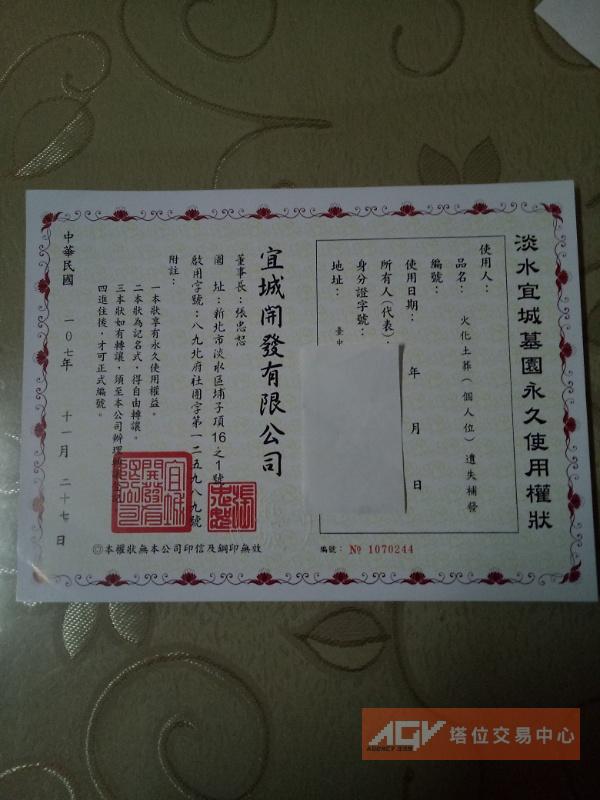 淡水宜城墓園永久使用權狀
使用人：
品名：火化土葬（個人位）遺失補發
編號：
使用日期： 年 月 日
所有人（代表）：
身分證字號：
地址：臺中
編號： № 1070244
宜城開發有限公司
董事長：張忠恕
園 址：新北市淡水區埔子頂16之1號
啟用字號：八九北府社園字第一二五九八九號
附註：
一本狀享有永久使用權益。
二本狀為記名式，得自由轉讓。
三本狀如有轉讓，須至本公司辦理
四進住後，才可正式編號。
中華民國 一〇七年 十一月 二十七日
◎本權狀無本公司印信及鋼印無效
宜城開發有限公司
AGV
塔位交易中心